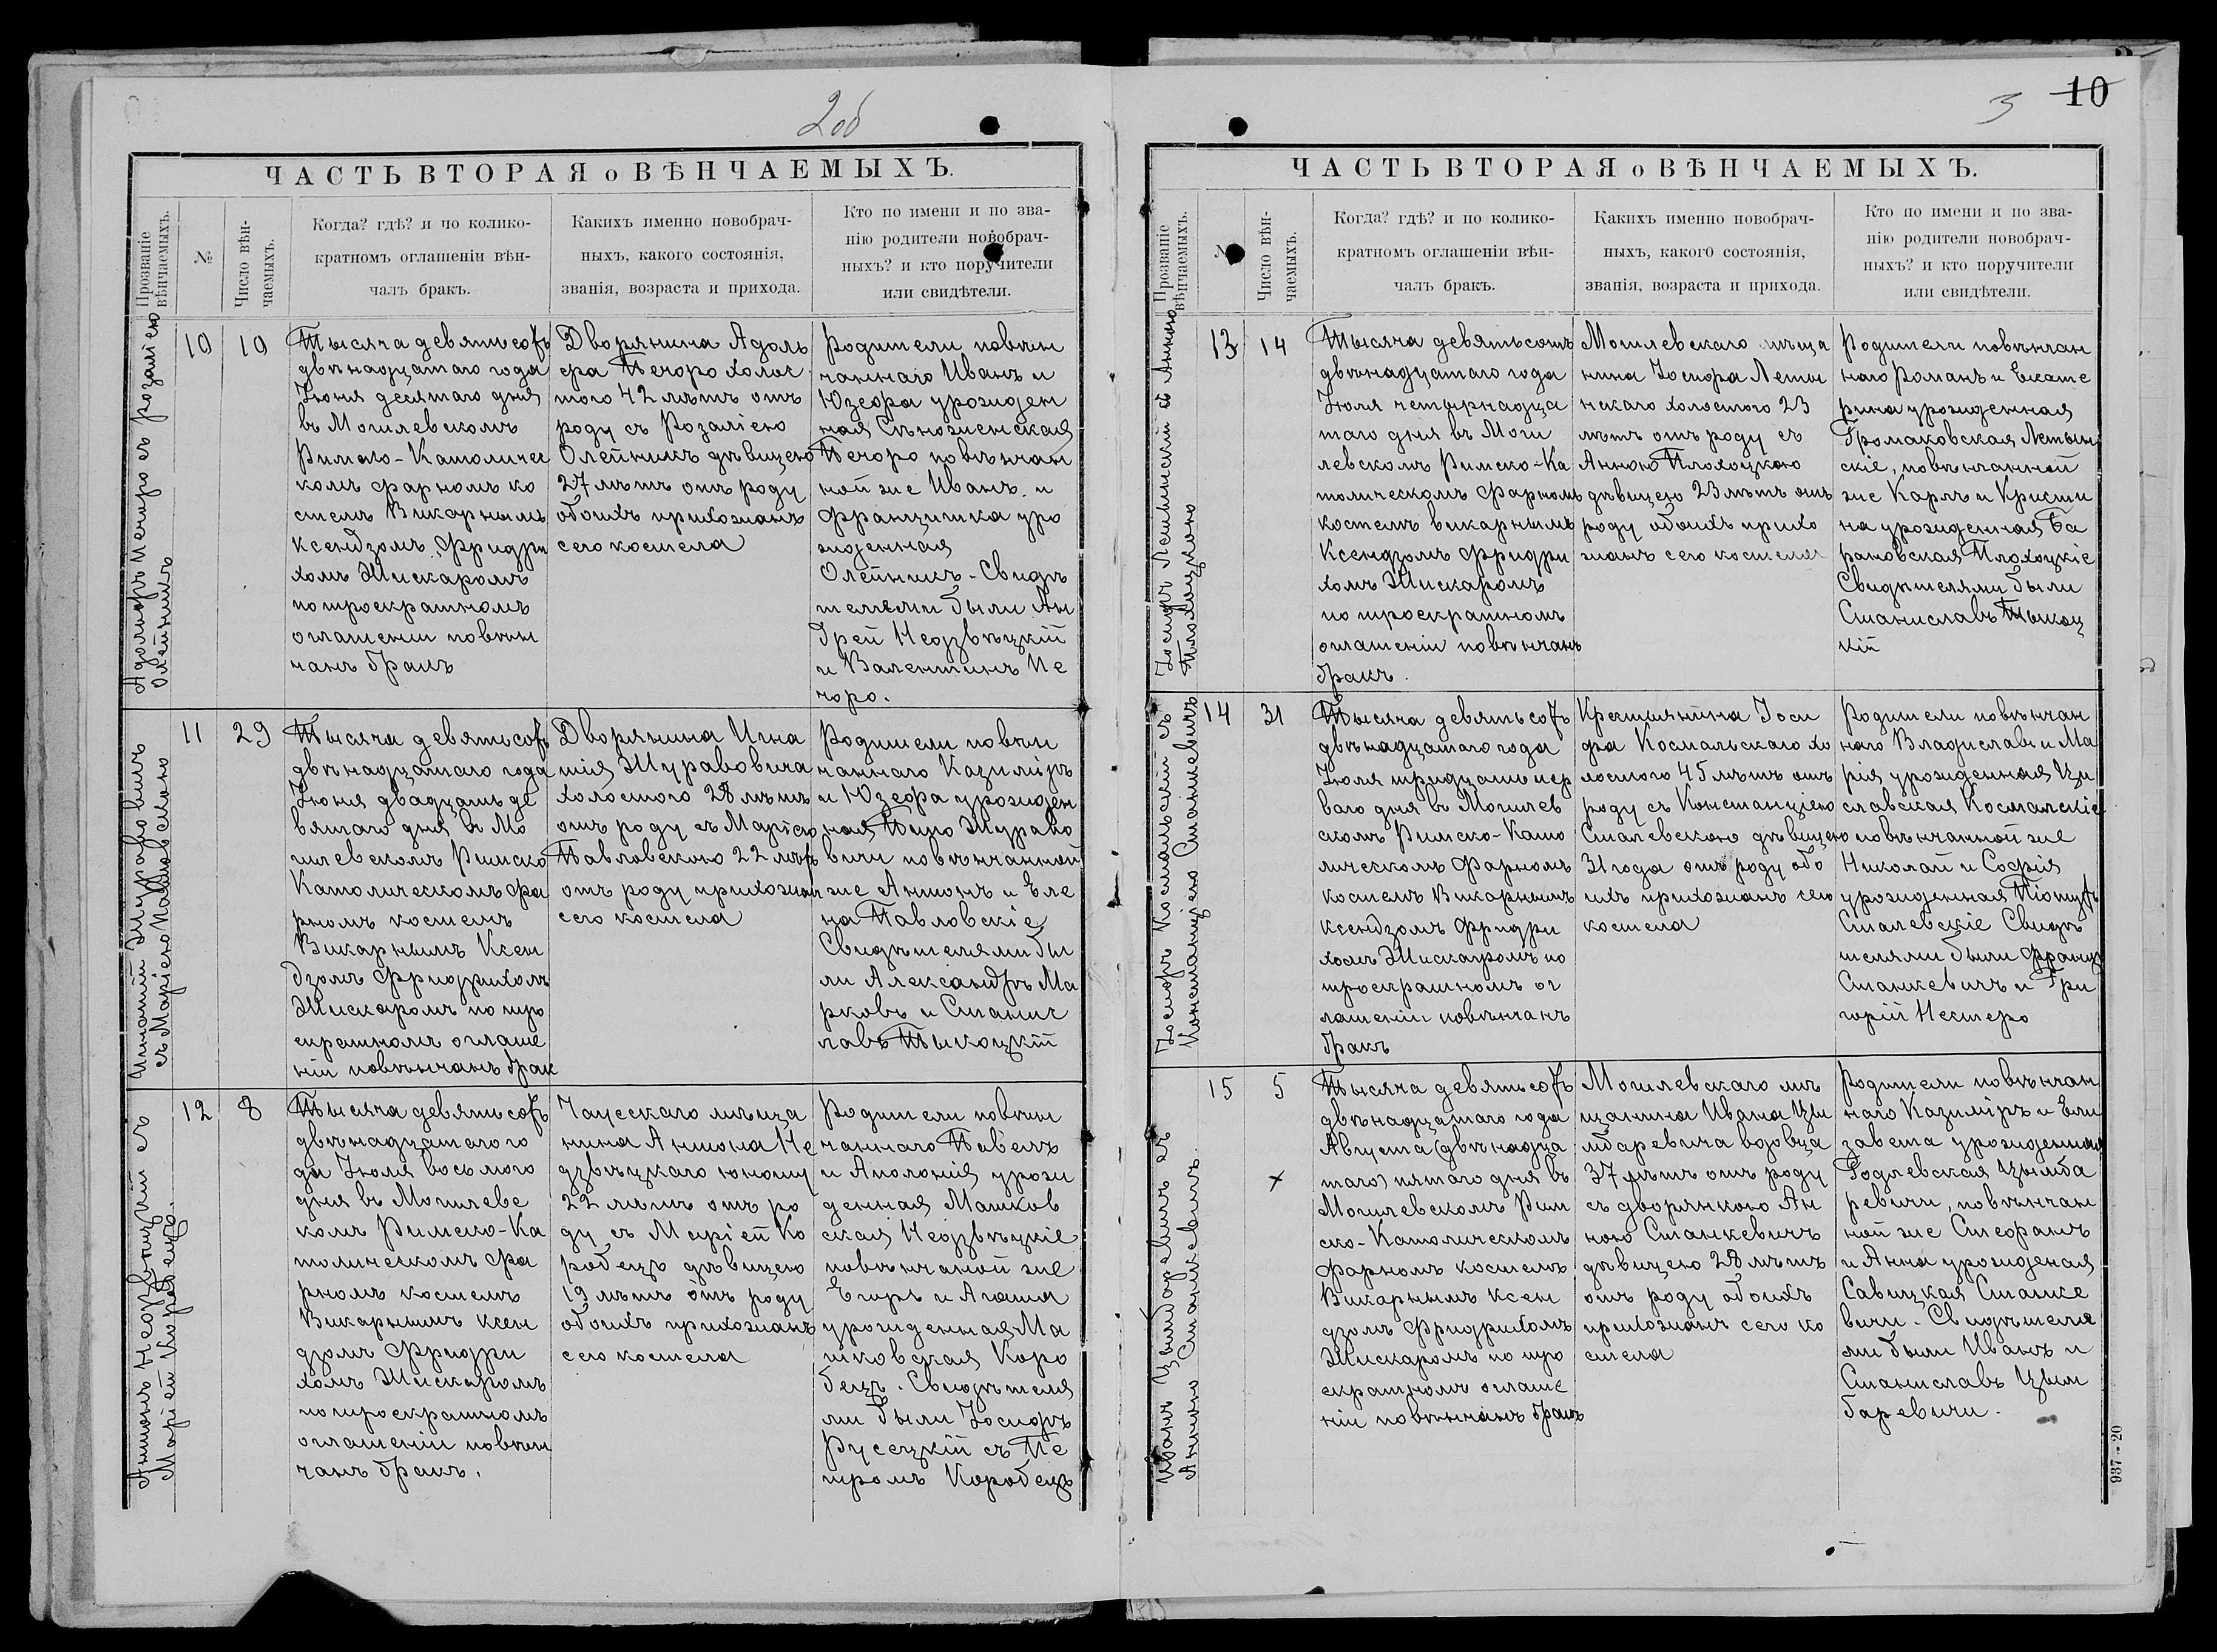 2об
ЧАСТЬ ВТОРАЯ о ВѢНЧАЕМЫХЪ.
Прозваніе
вѣнчаемыхъ.
№
Число вѣн-
чаемыхъ.
Когда? гдѣ? и по колико-
кратномъ оглашеніи вѣн-
чалъ бракъ.
Какихъ именно новобрач-
ныхъ, какого состоянія,
званія, возраста и прихода.
Кто по имени и по зва-
нію родители новобрач-
ныхъ? и кто поручители
или свидѣтели.
Адольфъ Печоро съ Розаліею
Олейникъ
10
10
Тысяча девятьсотъ
двѣнадцатаго года
Іюня десятаго дня
въ Могилевскомъ
Римско-Католичес
комъ фарномъ ко
стелѣ Викарнымъ
Ксендзомъ Фридри
хомъ Жискаромъ
по троекратномъ
оглашеніи повѣн
чанъ бракъ
Дворянина Адоль
фа Печоро холос
того 42 лѣтъ отъ
роду съ Розаліею
Олейникъ дѣвицею
27 лѣтъ отъ роду
обоихъ прихожанъ
сего костела
Родители повѣн
чаннаго Иванъ и
Юзефа урожден
ная Сѣножненская
Печоро повѣнчан
ной же Иванъ и
Францишка уро
жденная
Олейникъ. Свидѣ
телями были Ан
дрей Недзвѣцкій
и Валентинъ Пе
чоро.
Игнатій Журавовичъ
съ Маріею Павловскою
11
29
Тысяча девятьсотъ
двѣнадцатаго года
Іюня двадцать де
вятаго дня въ Мо
гилевскомъ Римско
Католическомъ фа
рномъ костелѣ
Викарнымъ Ксен
дзомъ Фридрихомъ
Жискаромъ по тро
екратномъ оглаше
ніи повѣнчанъ брак
Дворянина Игна
тія Журавовича
холостого 28 лѣтъ
отъ роду съ Маріею
Павловскою 22 лѣтъ
отъ роду прихожан
сего костела
Родители повѣн
чаннаго Казиміръ
и Юзефа урожден
ная Журавo
вичи повѣнчанной
же Антонъ и Еле
на Павловскіе
Свидѣтелями бы
ли Александръ Ма
рковъ и Станис
лавъ Тыкоцкій
Антонъ Недзвѣцкій съ
Маріей Коробецъ.
12
8
Тысяча девятьсотъ
двѣнадцатаго го
да Іюля восьмого
дня въ Могилевс
комъ Римско-Ка
толическомъ фа
рномъ костелѣ
Викарнымъ Ксен
дзомъ Фридри
хомъ Жискаромъ
по троекратномъ
оглашеніи повѣн
чанъ бракъ.
Чаусскаго мѣща
нина Антона Не
дзвѣцкаго юношу
22 лѣтъ отъ ро
ду съ Маріей Ко
робецъ дѣвицею
19 лѣтъ отъ роду
обоихъ прихожанъ
сего костела
Родители повѣн
чаннаго Павелъ
и Аполонія урож
денная Машков
ская Недзвѣцкіе
повѣнчаной же
Егоръ и Агаша
урожденная Ма
шковская Коро
бецъ. Свидѣтеля
ми были Іосифъ
Русецкій съ Пе
тромъ Коробецъ
3
10
ЧАСТЬ ВТОРАЯ о ВѢНЧАЕМЫХЪ.
Прозваніе
вѣнчаемыхъ.
Число вѣн-
чаемыхъ.
Когда? гдѣ? и по колико-
кратномъ оглашеніи вѣн-
чалъ бракъ.
Какихъ именно новобрач-
ныхъ, какого состоянія,
званія, возраста и прихода.
Кто по имени и по зва-
нію родители новобрач-
ныхъ? и кто поручители
или свидѣтели.
Іосифъ съ Анною
Плохоцкою
13
14
Тысяча девятьсотъ
двѣнадцатаго года
Іюля четырнадца
таго дня въ Моги
левскомъ Римско-Ка
толическомъ фарномъ
костелѣ викарнымъ
Ксендзомъ Фридри
хомъ Жискаромъ
по троекратномъ
оглашеніи повѣнчанъ
бракъ.
Могилевскаго мѣща
нина Іосифа Леты
нскаго холостого 23
лѣтъ отъ роду съ
Анною Плохоцкою
дѣвицею 23 лѣтъ отъ
роду обоихъ прихо
жанъ сего костела
Родители повѣнчан
наго Романъ и Екате
рина урожденная
Громаковская Летын
скіе, повѣнчанной
же Карлъ и Кристи
на урожденная Ба
рановская Плохоцкіе
Свидѣтелями были
Станиславъ Тыкоц
кій
Іосифъ Космальскій съ
Констанціею
14
31
Тысяча девятьсотъ
двѣнадцатаго года
Іюля тридцать пер
ваго дня въ Могилев
скомъ Римско-Като
лическомъ фарномъ
костелѣ Викарнымъ
ксендзомъ Фридри
хомъ Жискаромъ по
троекратномъ ог
лашеніи повѣнчанъ
бракъ
Крестьянина Іоси
фа Космальскаго хо
лостого 45 лѣтъ отъ
роду съ Констанціею
Сталевскою дѣвицею
31 года отъ роду обо
ихъ прихожанъ сего
костела
Родители повѣнчан
наго Владиславъ и Ма
рія урожденная Ци
славская Космалскіе
повѣнчанной же
Николай и Софія
урожденная
Сталевскіе Свидѣ
телями были Францъ
Станкевичъ и Гри
горій Нестеро
Иванъ Цымбаревичъ съ
Анною Станкевичъ.
15
5
х
Тысяча девятьсотъ
двѣнадцатаго года
Августа (двѣнадца
таго) пятаго дня въ
Могилевскомъ Рим
ско-Католическомъ
фарномъ костелѣ
Викарнымъ ксен
дзомъ Фридрихомъ
Жискаромъ по тро
екратномъ оглаше
ніи повѣнчанъ бракъ
Могилевскаго мѣ
щанина Ивана Цы
мбаревича вдовца
37 лѣтъ отъ роду
съ дворянкою Ан
ною Станкевичъ
дѣвицею 28 лѣтъ
отъ роду обоихъ
прихожанъ сего ко
стела
Родители повѣнчан
наго Казиміръ и Ели
завета урожденная
Годлевская Цымба
ревичи, повѣнчан
ной же Стефанъ
и Анна урожденая
Савицкая Станке
вичи. Свидѣтеля
ми были Иванъ и
Станиславъ Цым
баревичи.
937-20